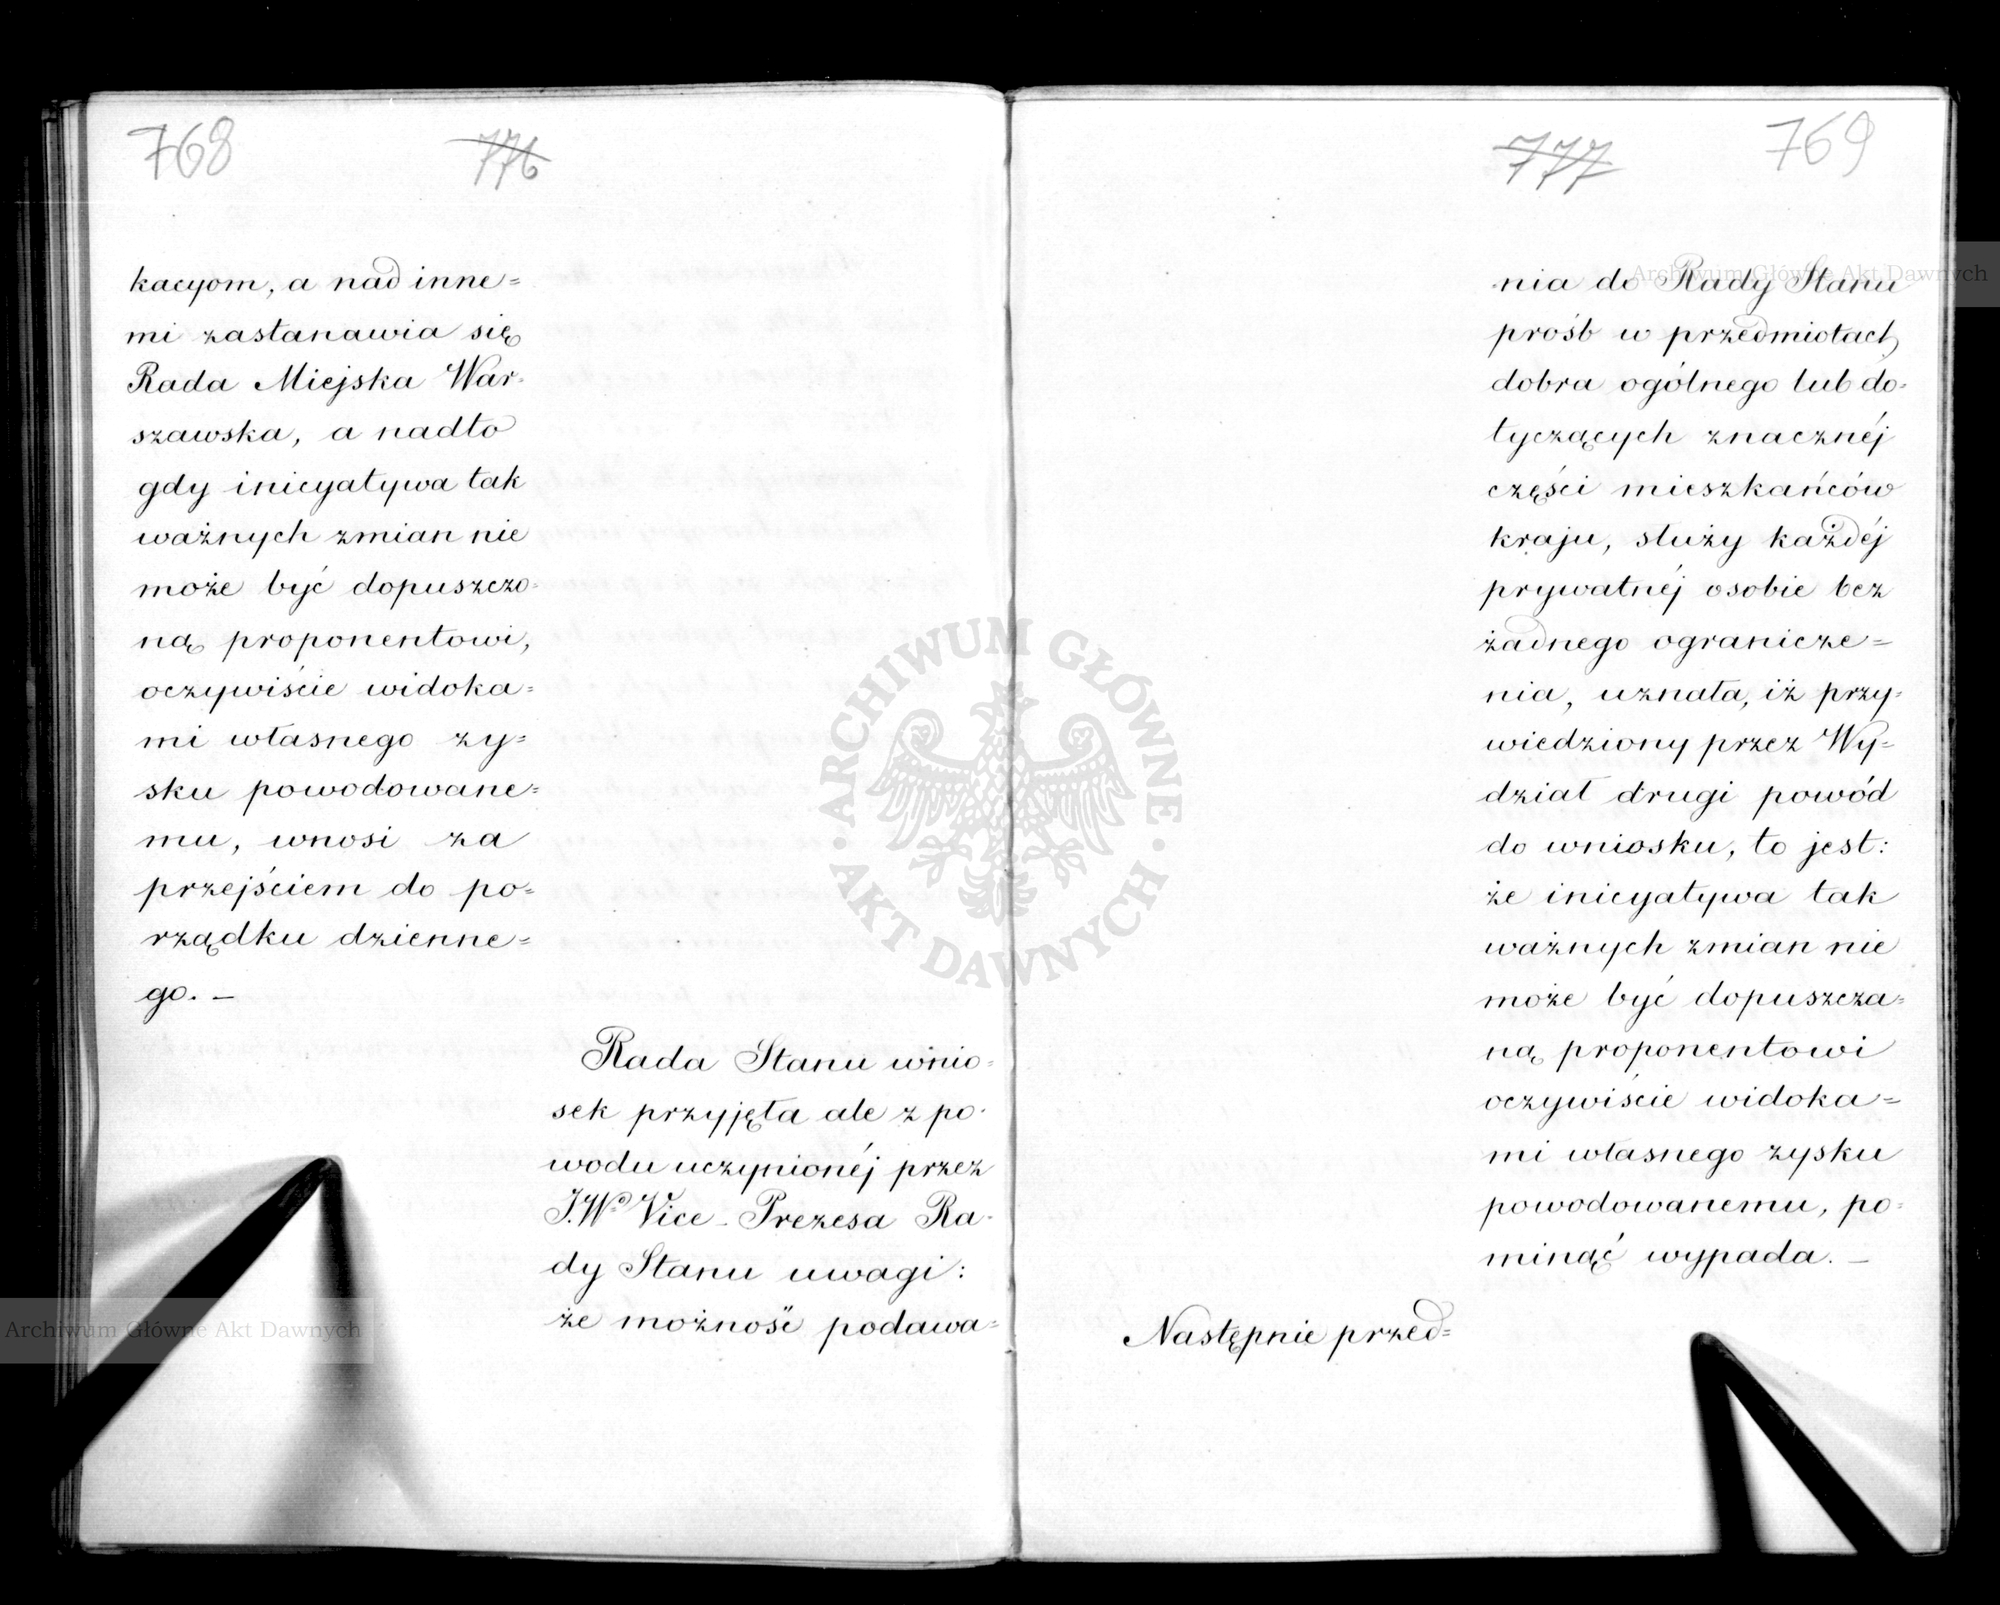 768
776
kacyom, a nad inne=
mi zastanawia się
Rada Miejska War-
szawska, a nadto
gdy inicyatywa tak
ważnych zmian nie
może być dopuszczo-
ną proponentowi,
oczywiście widoka=
mi własnego zy=
sku powodowane=
mu, wnosi za
przejściem do po=
rządku dzienne=
go. —
Rada Stanu wnio-
sek przyjęła ale z po-
wodu uczynionéj przez
J.Wo Vice-Prezesa Ra-
dy Stanu uwagi:
że możność podawa=
777
769
nia do Rady Stanu
prośb w przedmiotach
dobra ogólnego lub do-
tyczących znacznéj
części mieszkańców
kraju, służy każdéj
prywatnéj osobie bez
żadnego ogranicze=
nia, uznała, iż przy-
wiedziony przez Wy=
dział drugi powód
do wniosku, to jest:
że inicyatywa tak
ważnych zmian nie
może być dopuszcza=
ną proponentowi
oczywiście widoka=
mi własnego zysku
powodowanemu, po=
minąć wypada. —
Następnie przed=
Archiwum Główne Akt Dawnych
Archiwum Główne Akt Dawnych
ARCHIWUM GŁÓWNE
AKT DAWNYCH